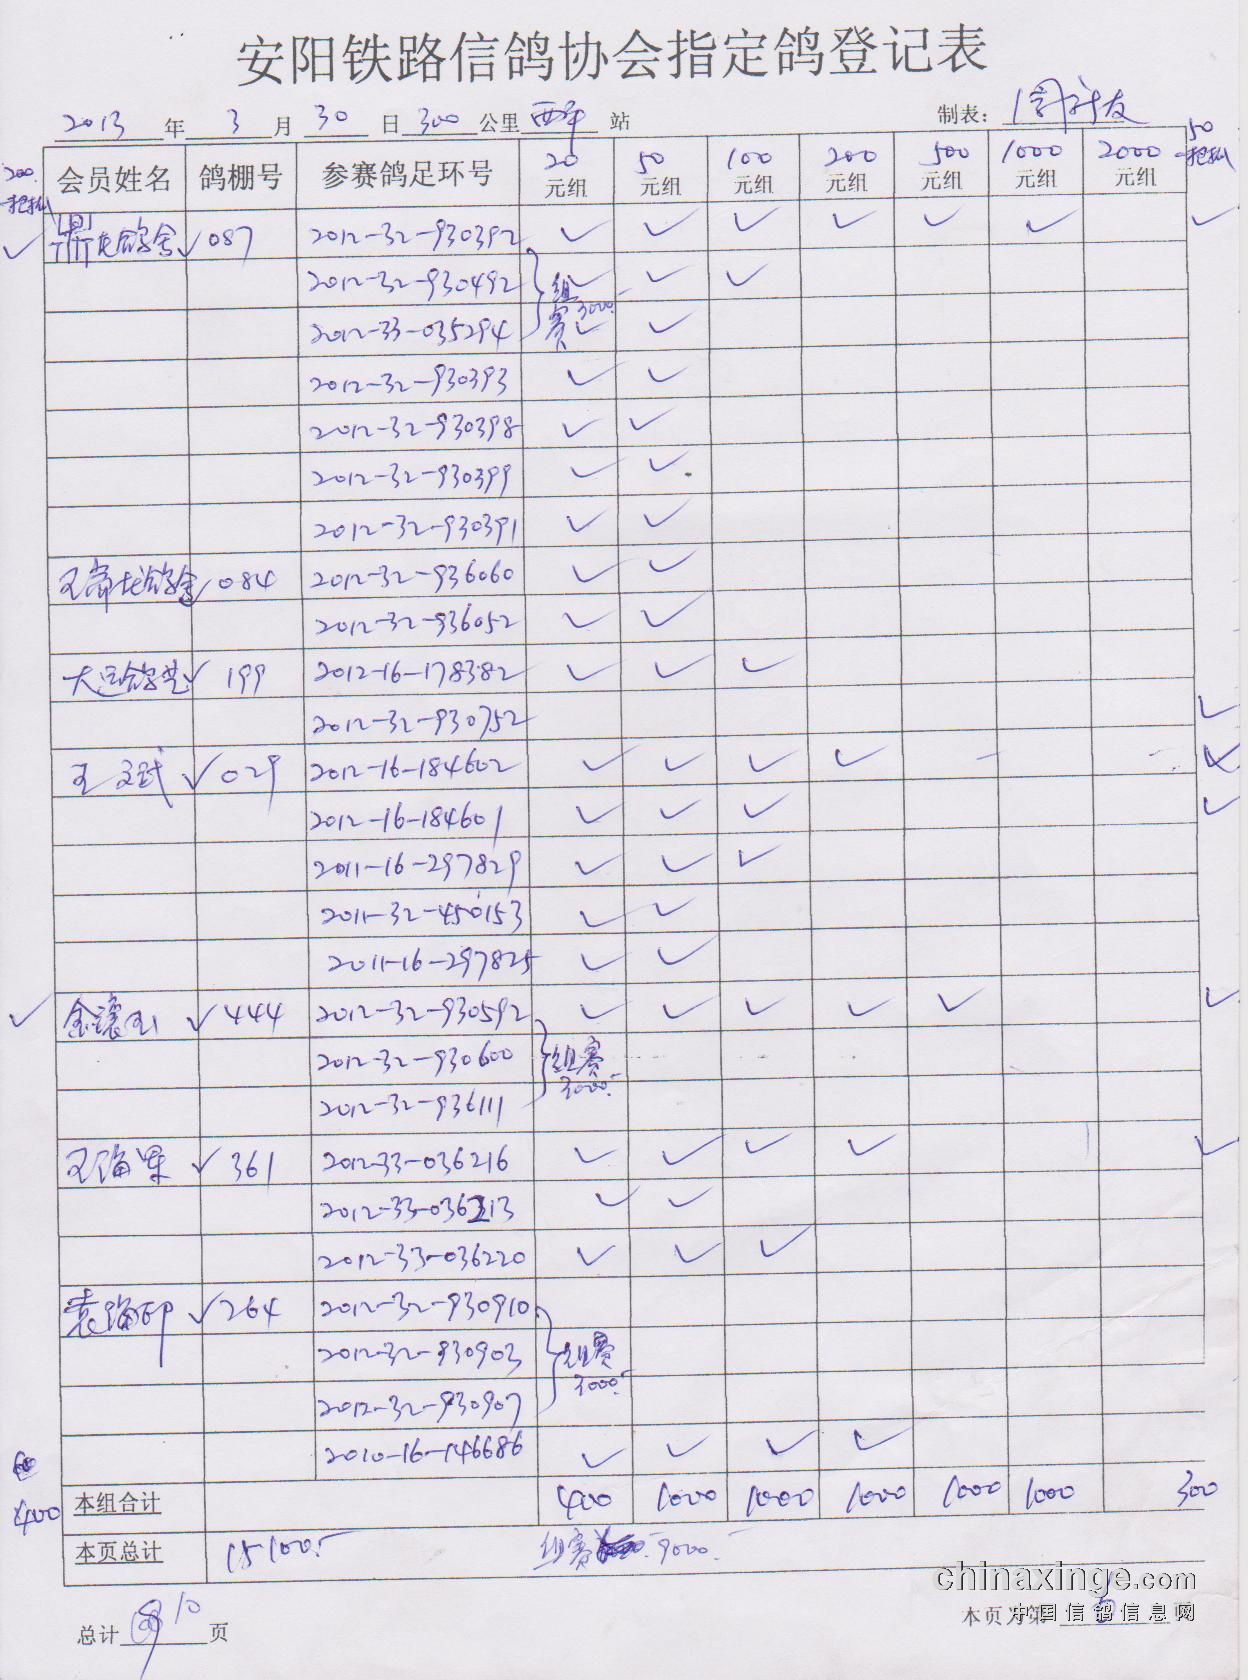 安阳铁路信鸽协会指定鸽登记表
2013年 3月 30日 300公里 西平 站 制表:
会员姓名 鸽棚号 参赛鸽足环号 20元组 50元组 100元组 200元组 500元组 1000元组 2000元组
200 50
鸽舍 ✓ 087 2012-32-930392 ✓ ✓ ✓ ✓ ✓ ✓ ✓
2012-32-930492 ✓ ✓ ✓
组赛 3000.-
2012-33-035294 ✓ ✓
2012-32-930393 ✓ ✓
2012-32-930398 ✓ ✓
2012-32-930399 ✓ ✓
2012-32-930391 ✓ ✓
鸽舍 ✓ 084 2012-32-936060 ✓ ✓
2012-32-936052 ✓ ✓
大运鸽 ✓ 199 2012-16-178382 ✓ ✓ ✓
2012-32-930752 ✓
王文斌 ✓ 029 2012-16-184602 ✓ ✓ ✓ ✓ ✓
2012-16-184601 ✓ ✓ ✓ ✓
2011-16-297829 ✓ ✓ ✓
2011-32-450153 ✓ ✓
2011-16-297825 ✓ ✓
✓ 444 2012-32-930592 ✓ ✓ ✓ ✓ ✓ ✓
2012-32-930600 组赛
2012-32-936111 3000.-
王海军 ✓ 361 2012-33-036216 ✓ ✓ ✓ ✓ ✓
2012-33-036213 ✓ ✓
2012-33-036220 ✓ ✓ ✓
袁海印 ✓ 264 2012-32-930910
2012-32-930903 组赛
2012-32-930907 3000.-
2010-16-146686 ✓ ✓ ✓ ✓
400 本组合计 400 1000 1000 1000 1000 1000 300
本页总计 15100.- 组赛 9000.-
chinaxinge.com
中国信鸽信息网
总计 10 页 本页为第 页